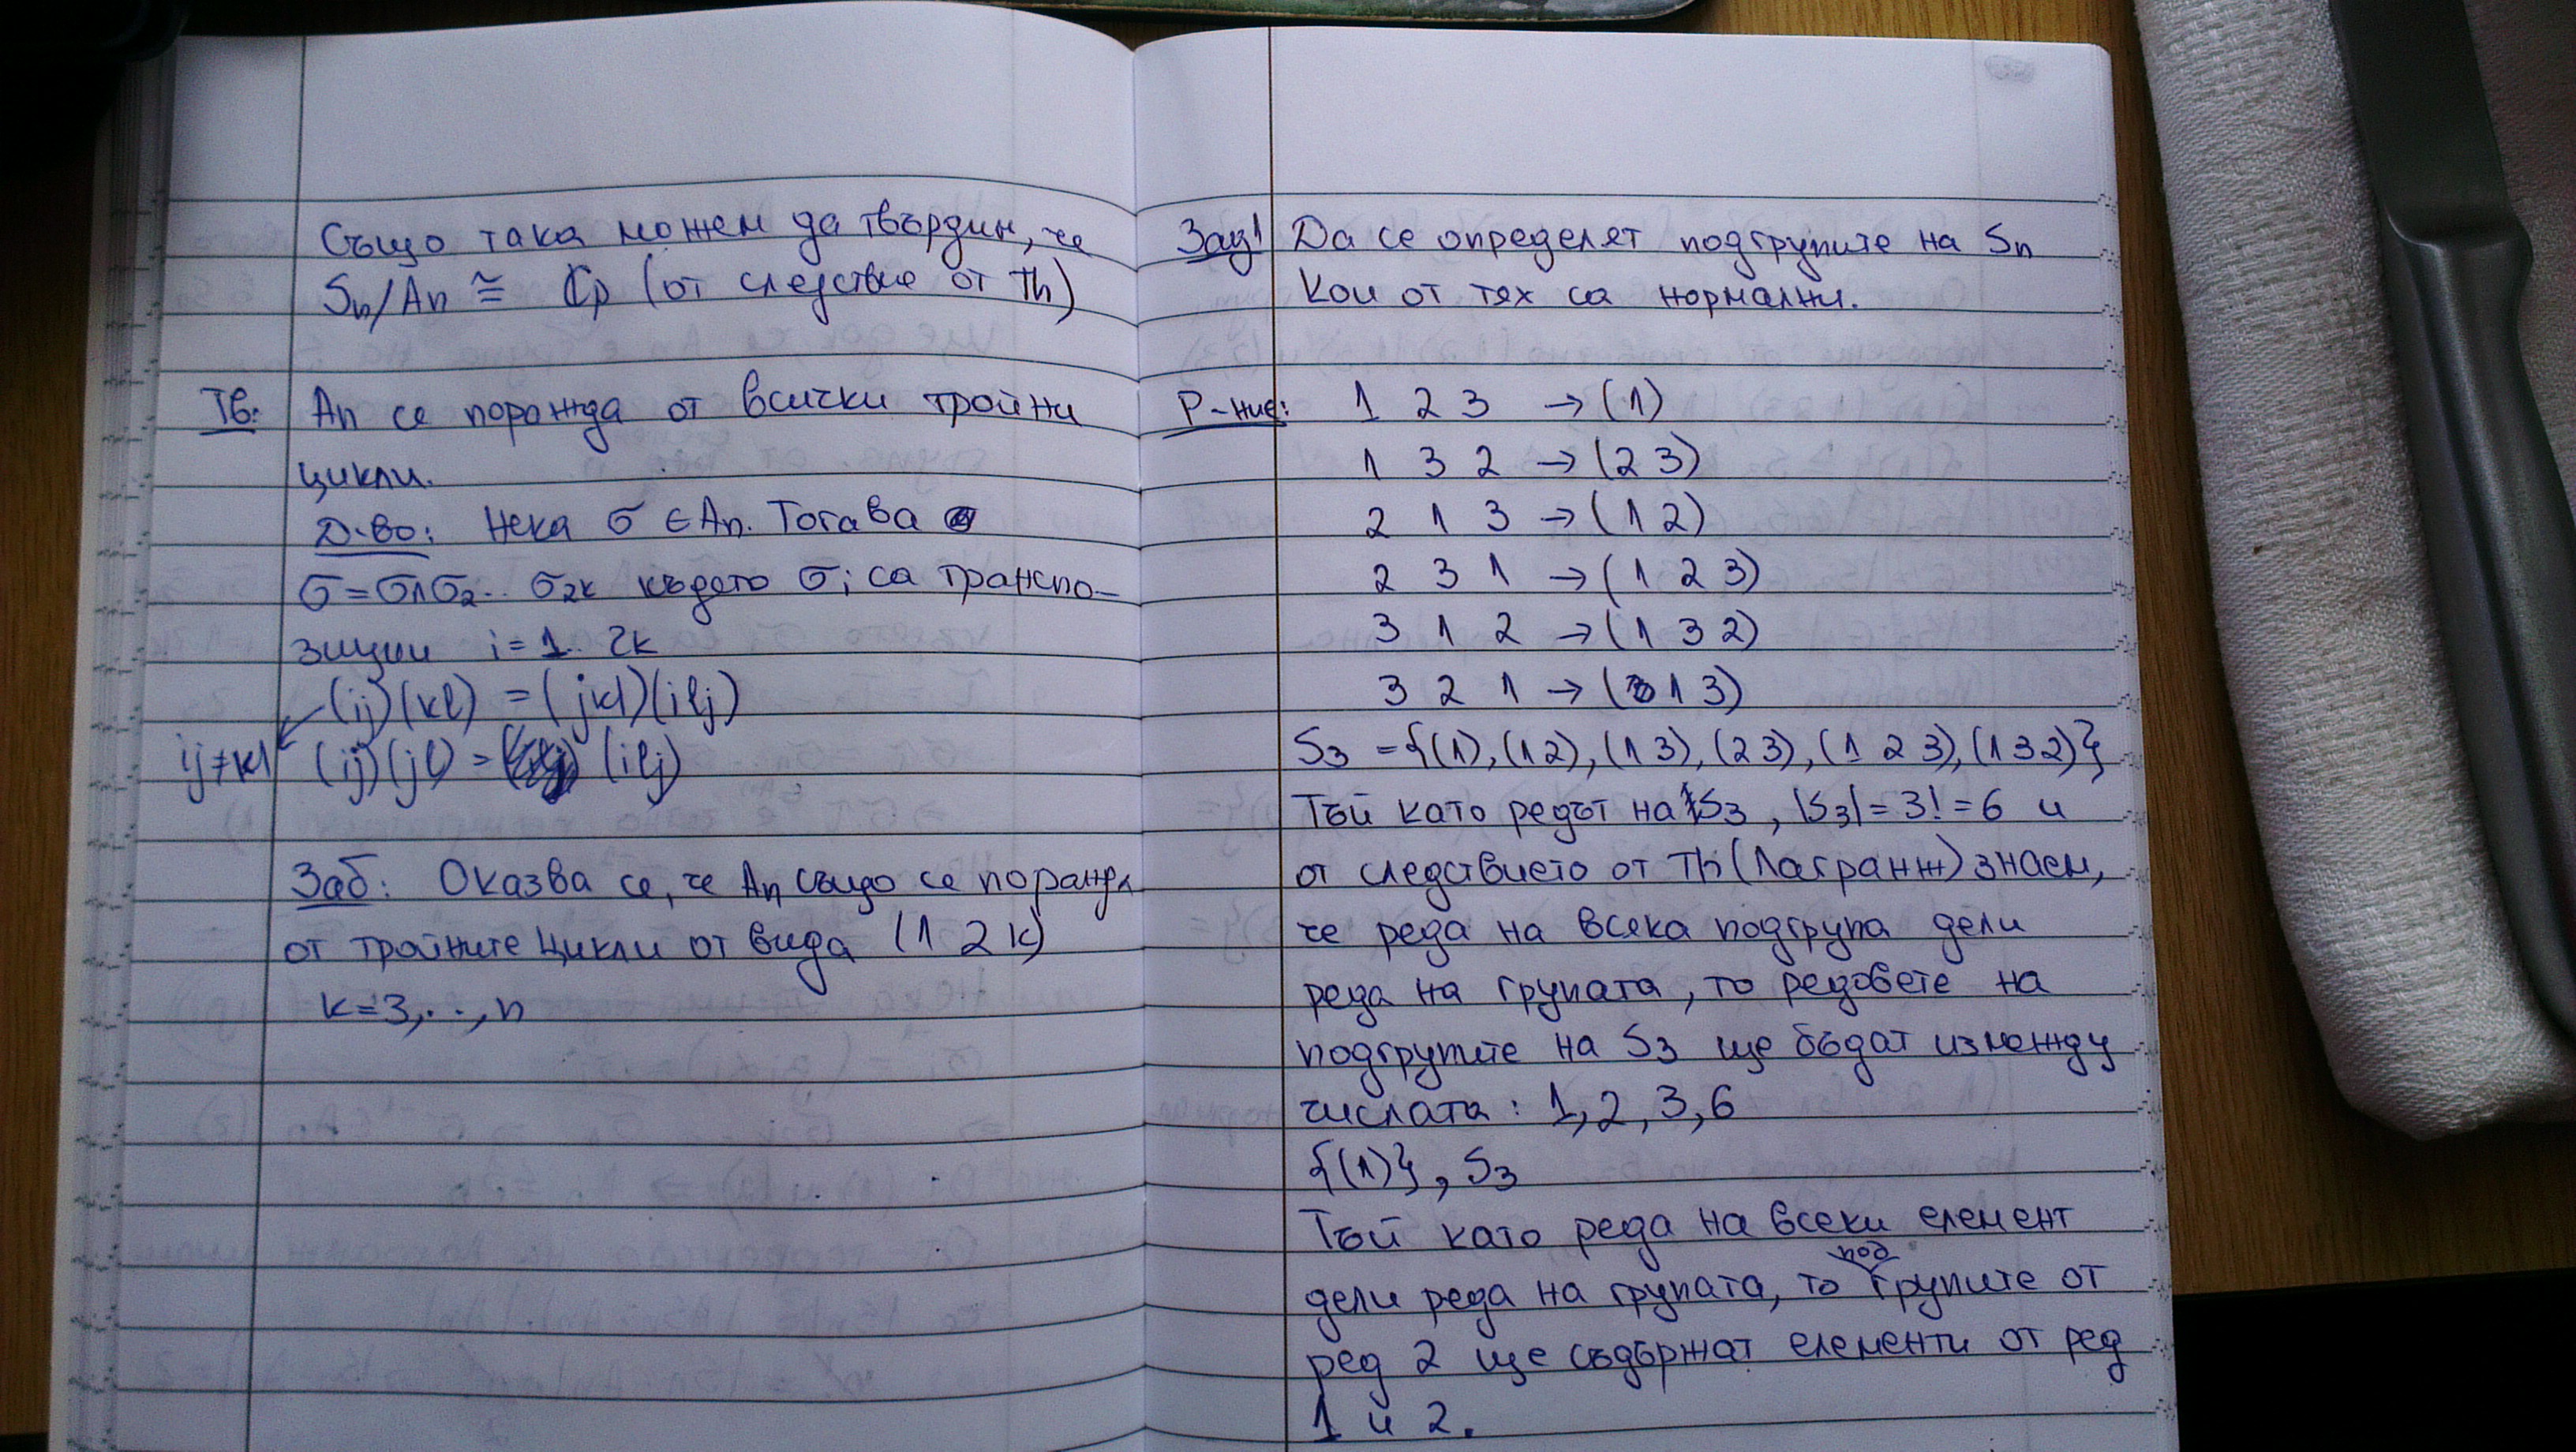 Също така можем да твърдим, че
Sn/An ≅ Cp (от следствие от Th)
Тв: An се поражда от всички тройни
цикли.
Д-во: Нека σ ∈ An. Тогава
σ = σ1σ2.. σ2k където σi са транспо-
зиции i = 1.. 2k
(ij)(kl) = (jkl)(ilj)
ij≠kl (ij)(jl) = (ilj)
Заб: Оказва се, че An също се поражда
от тройните цикли от вида (1 2 k)
k=3,..,n
Зад1 Да се определят подгрупите на Sn
Кои от тях са нормални.
Р-ние: 1 2 3 → (1)
1 3 2 → (2 3)
2 1 3 → (1 2)
2 3 1 → (1 2 3)
3 1 2 → (1 3 2)
3 2 1 → (1 3)
S3 = {(1), (1 2), (1 3), (2 3), (1 2 3), (1 3 2)}
Тъй като редът на S3, |S3| = 3! = 6 и
от следствието от Th (Лагранж) знаем,
че реда на всяка подгрупа дели
реда на групата, то редовете на
подгрупите на S3 ще бъдат измежду
числата: 1, 2, 3, 6
{(1)}, S3
Тъй като реда на всеки елемент
дели реда на групата, то подгрупите от
ред 2 ще съдържат елементи от ред
1 и 2.